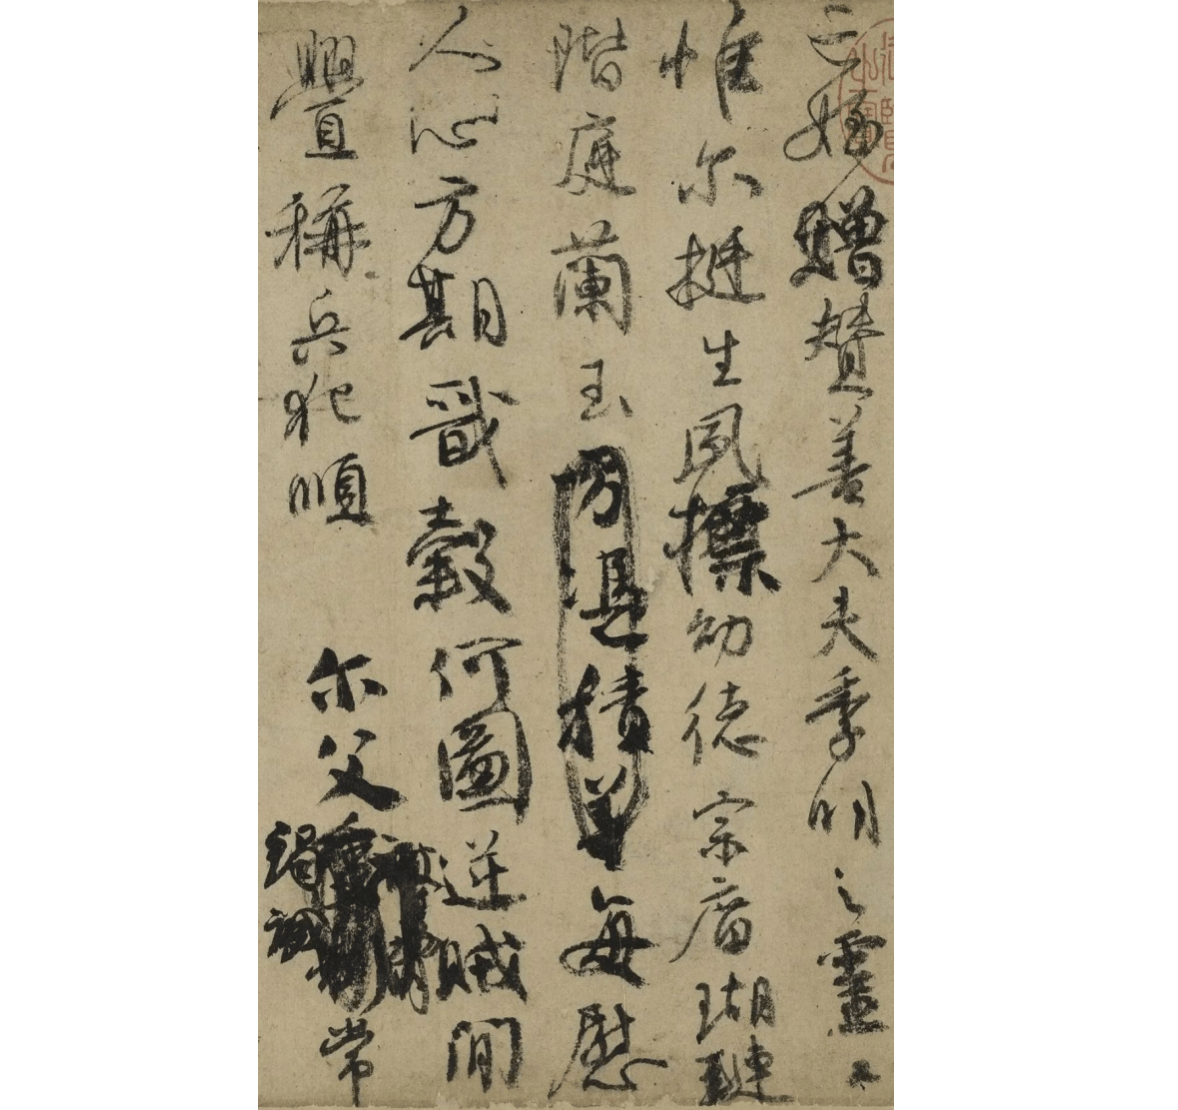 亡姪贈贊善大夫季明之靈曰
惟尔挺生夙標幼德宗廟瑚璉
階庭蘭玉方憑積善每慰
人心方期戩穀何圖逆賊閒
舋稱兵犯順尔父竭誠常